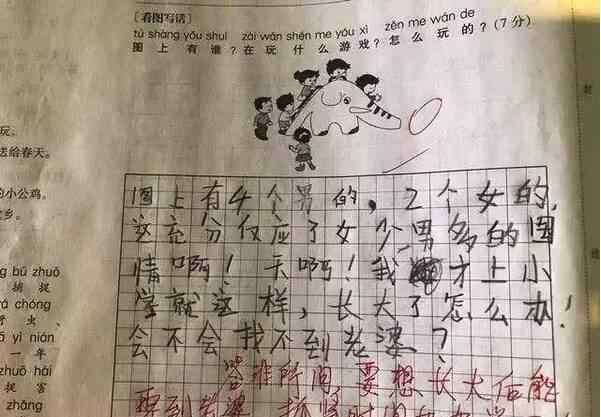 [看图写话]
tú shàng yǒu shuí zài wán shén me yóu xì zěn me wán de
图上有谁?在玩什么游戏?怎么玩的?(7分)
图上有4个男的,2个女的,
这充分仅应了女少男多的国
情啊!天啊!我才上小
学就这样,长大了怎么办!
会不会找不到老婆?
答非所问,要想长大后能
娶到老婆
玩。
送给春天。
的小公鸡。
乡。
bǔ zhuō
捕捉
chóng
虫、
yì nián
一年
zhuō hài
捉害
zhāng